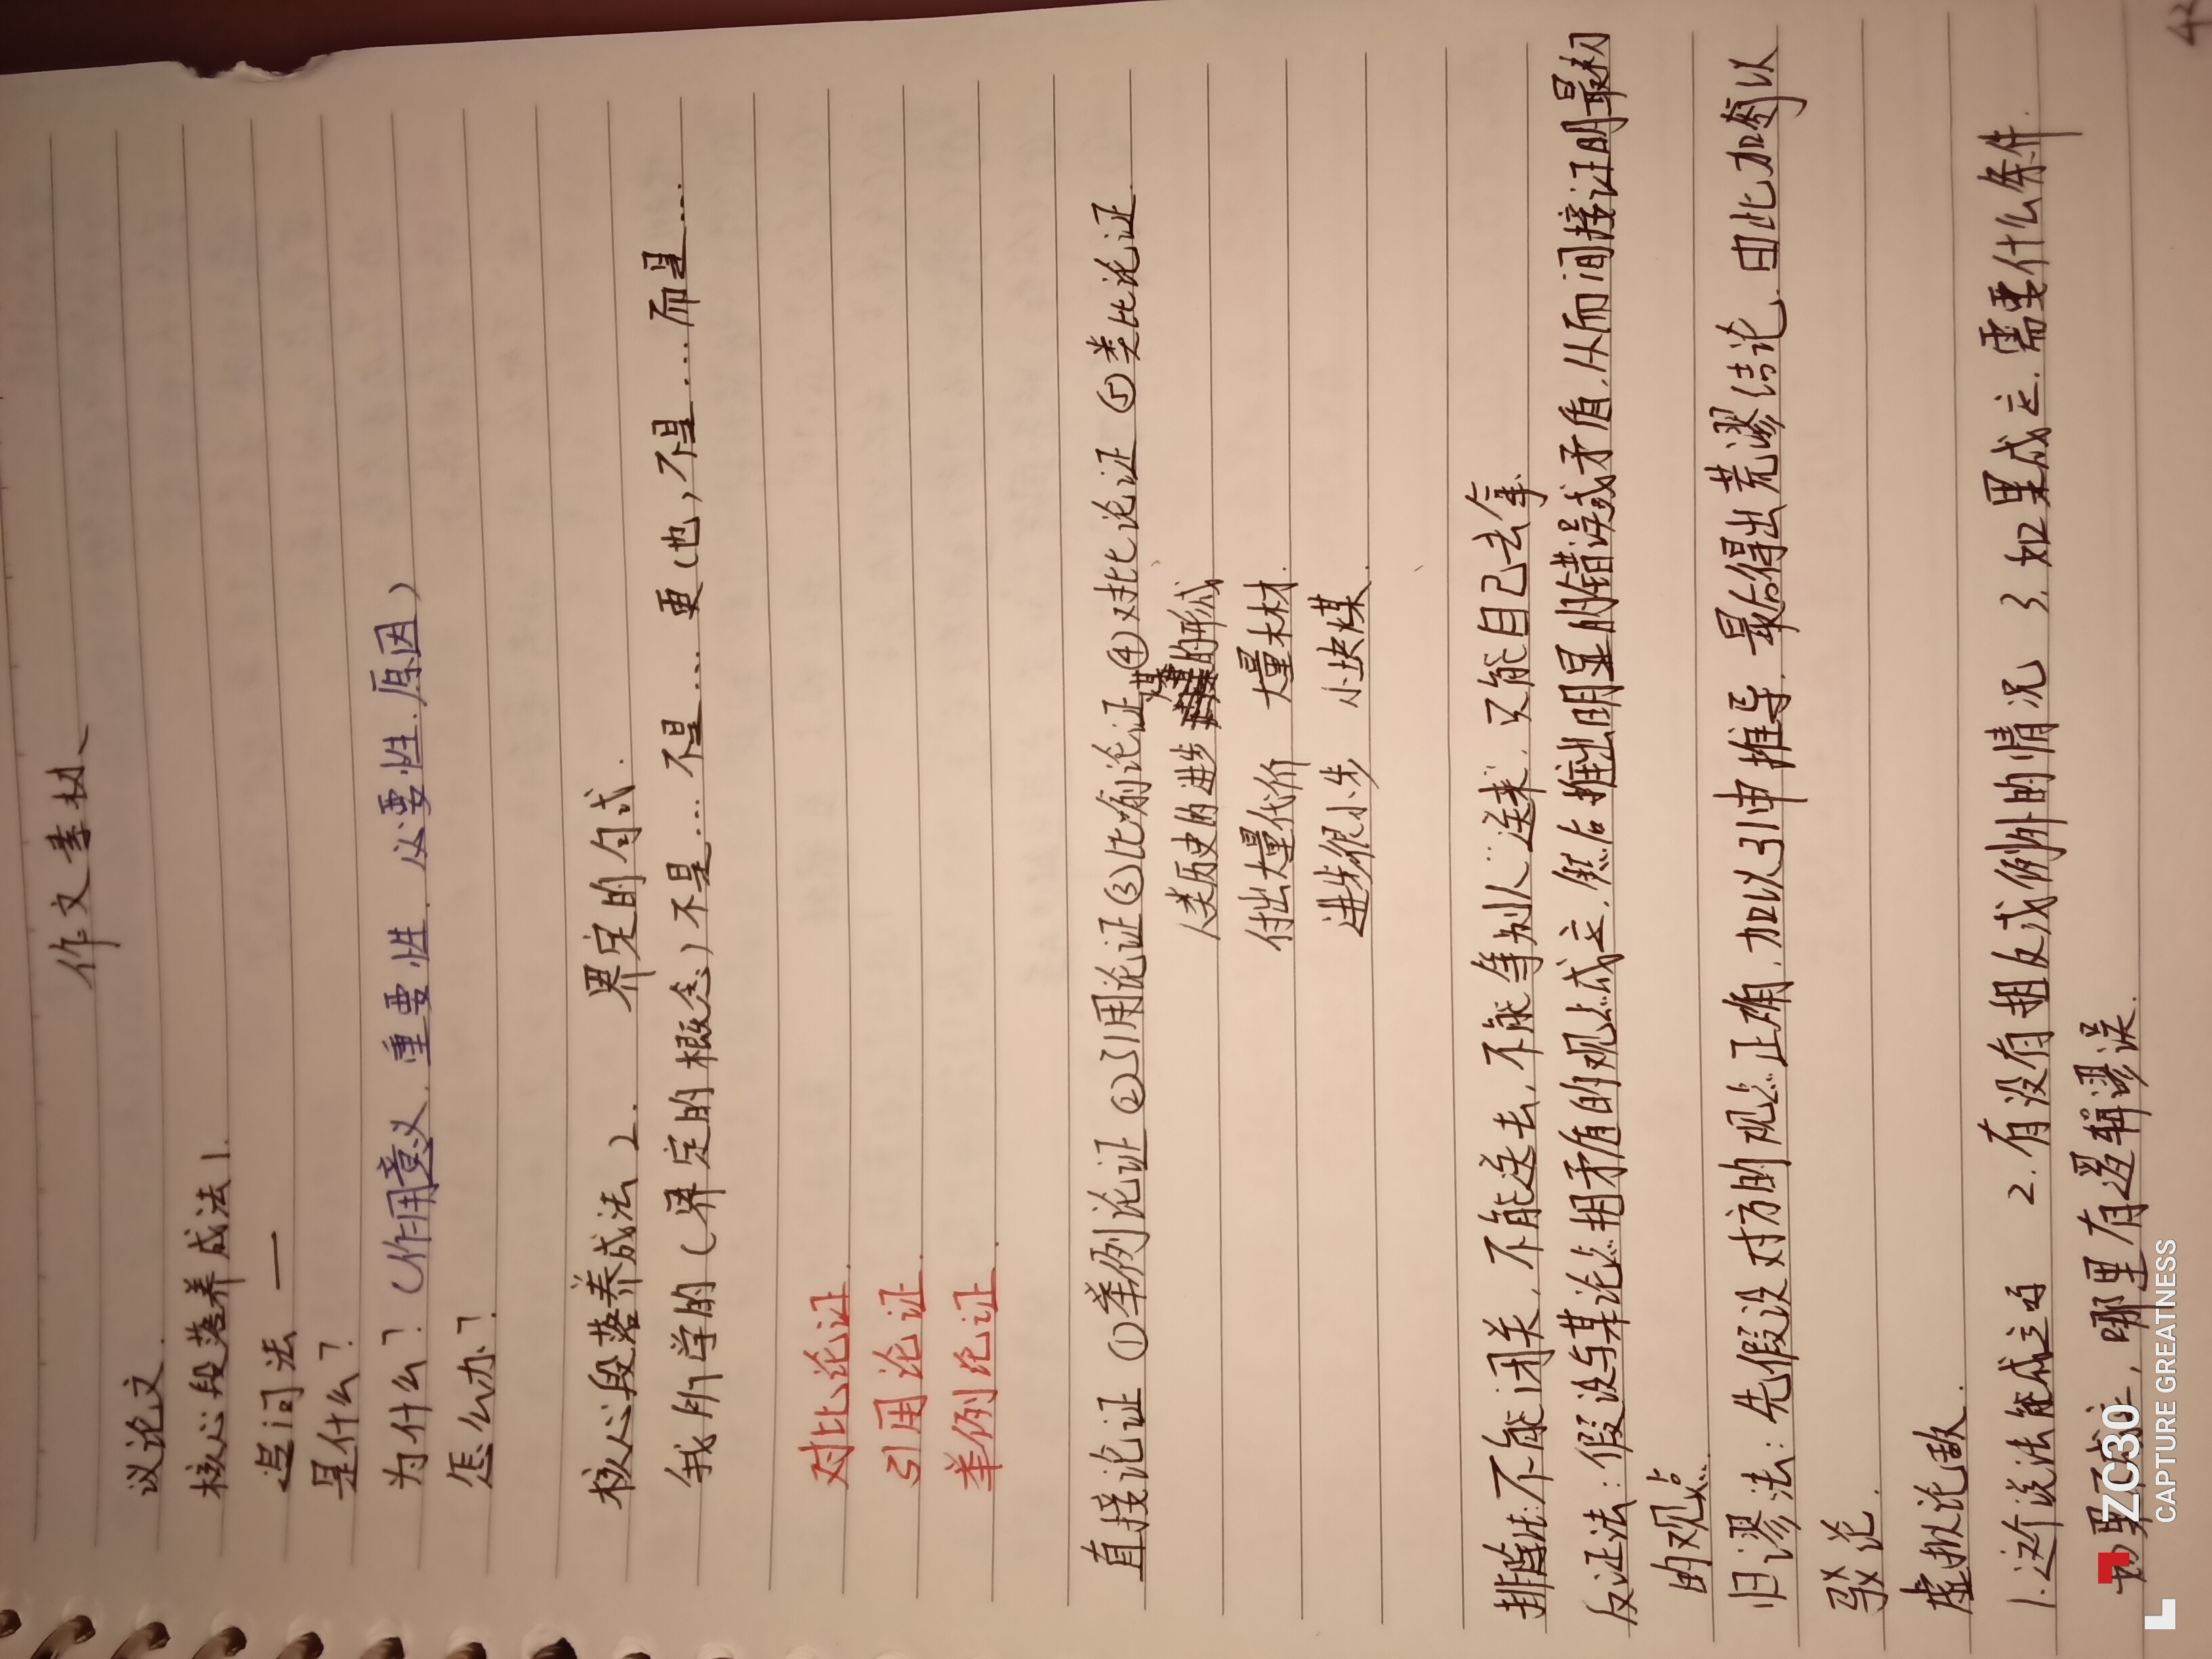 作文素材
议论文.
核心段落养成法1.
追问法 —
是什么?
为什么?(作用意义.重要性.必要性.原因)
怎么办?
核心段落养成法2. 界定的句式.
我所学的(界定的概念)不是…不是… 更(也)不是…而是…
对比论证.
引用论证.
举例论证.
直接论证 ①举例论证 ②引用论证 ③比喻论证 ④对比论证 ⑤类比论证.
人类历史的进步 煤的形成
付出大量代价 大量木材.
进步很小步 小块煤.
排除法:不能闭关,不能送去,不能等别人送来,只能自己去拿.
反证法:假设与某论点相矛盾的观点成立,然后推出明显的错误或矛盾,从而间接证明最初
的观点.
归谬法:先假设对方的观点正确,加以引申推导,最后得出荒谬结论.由此加以
驳论.
虚拟论敌.
1.这个说法能成立吗 2.有没有相反或例外的情况 3.如果成立.需要什么条件.
如果不成立,哪里有逻辑谬误.
ZC30
CAPTURE GREATNESS